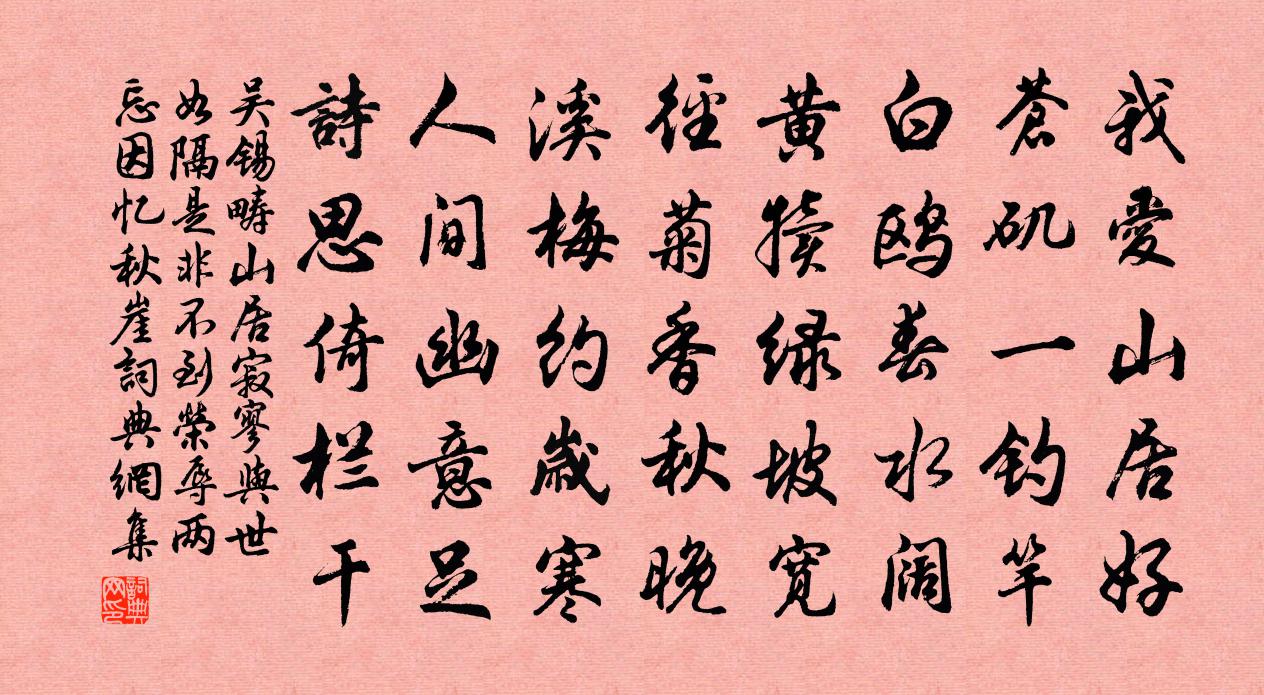 我愛山居好
蒼矶一钓竿
白鸥春水阔
黄犊绿坡宽
徑菊香秋晚
溪梅约歲寒
人间幽意足
詩思倚栏干
吴锡畴山居寂寥與世
如隔是非不到榮辱两
忘因忆秋崖詞典網集
詞典
网印